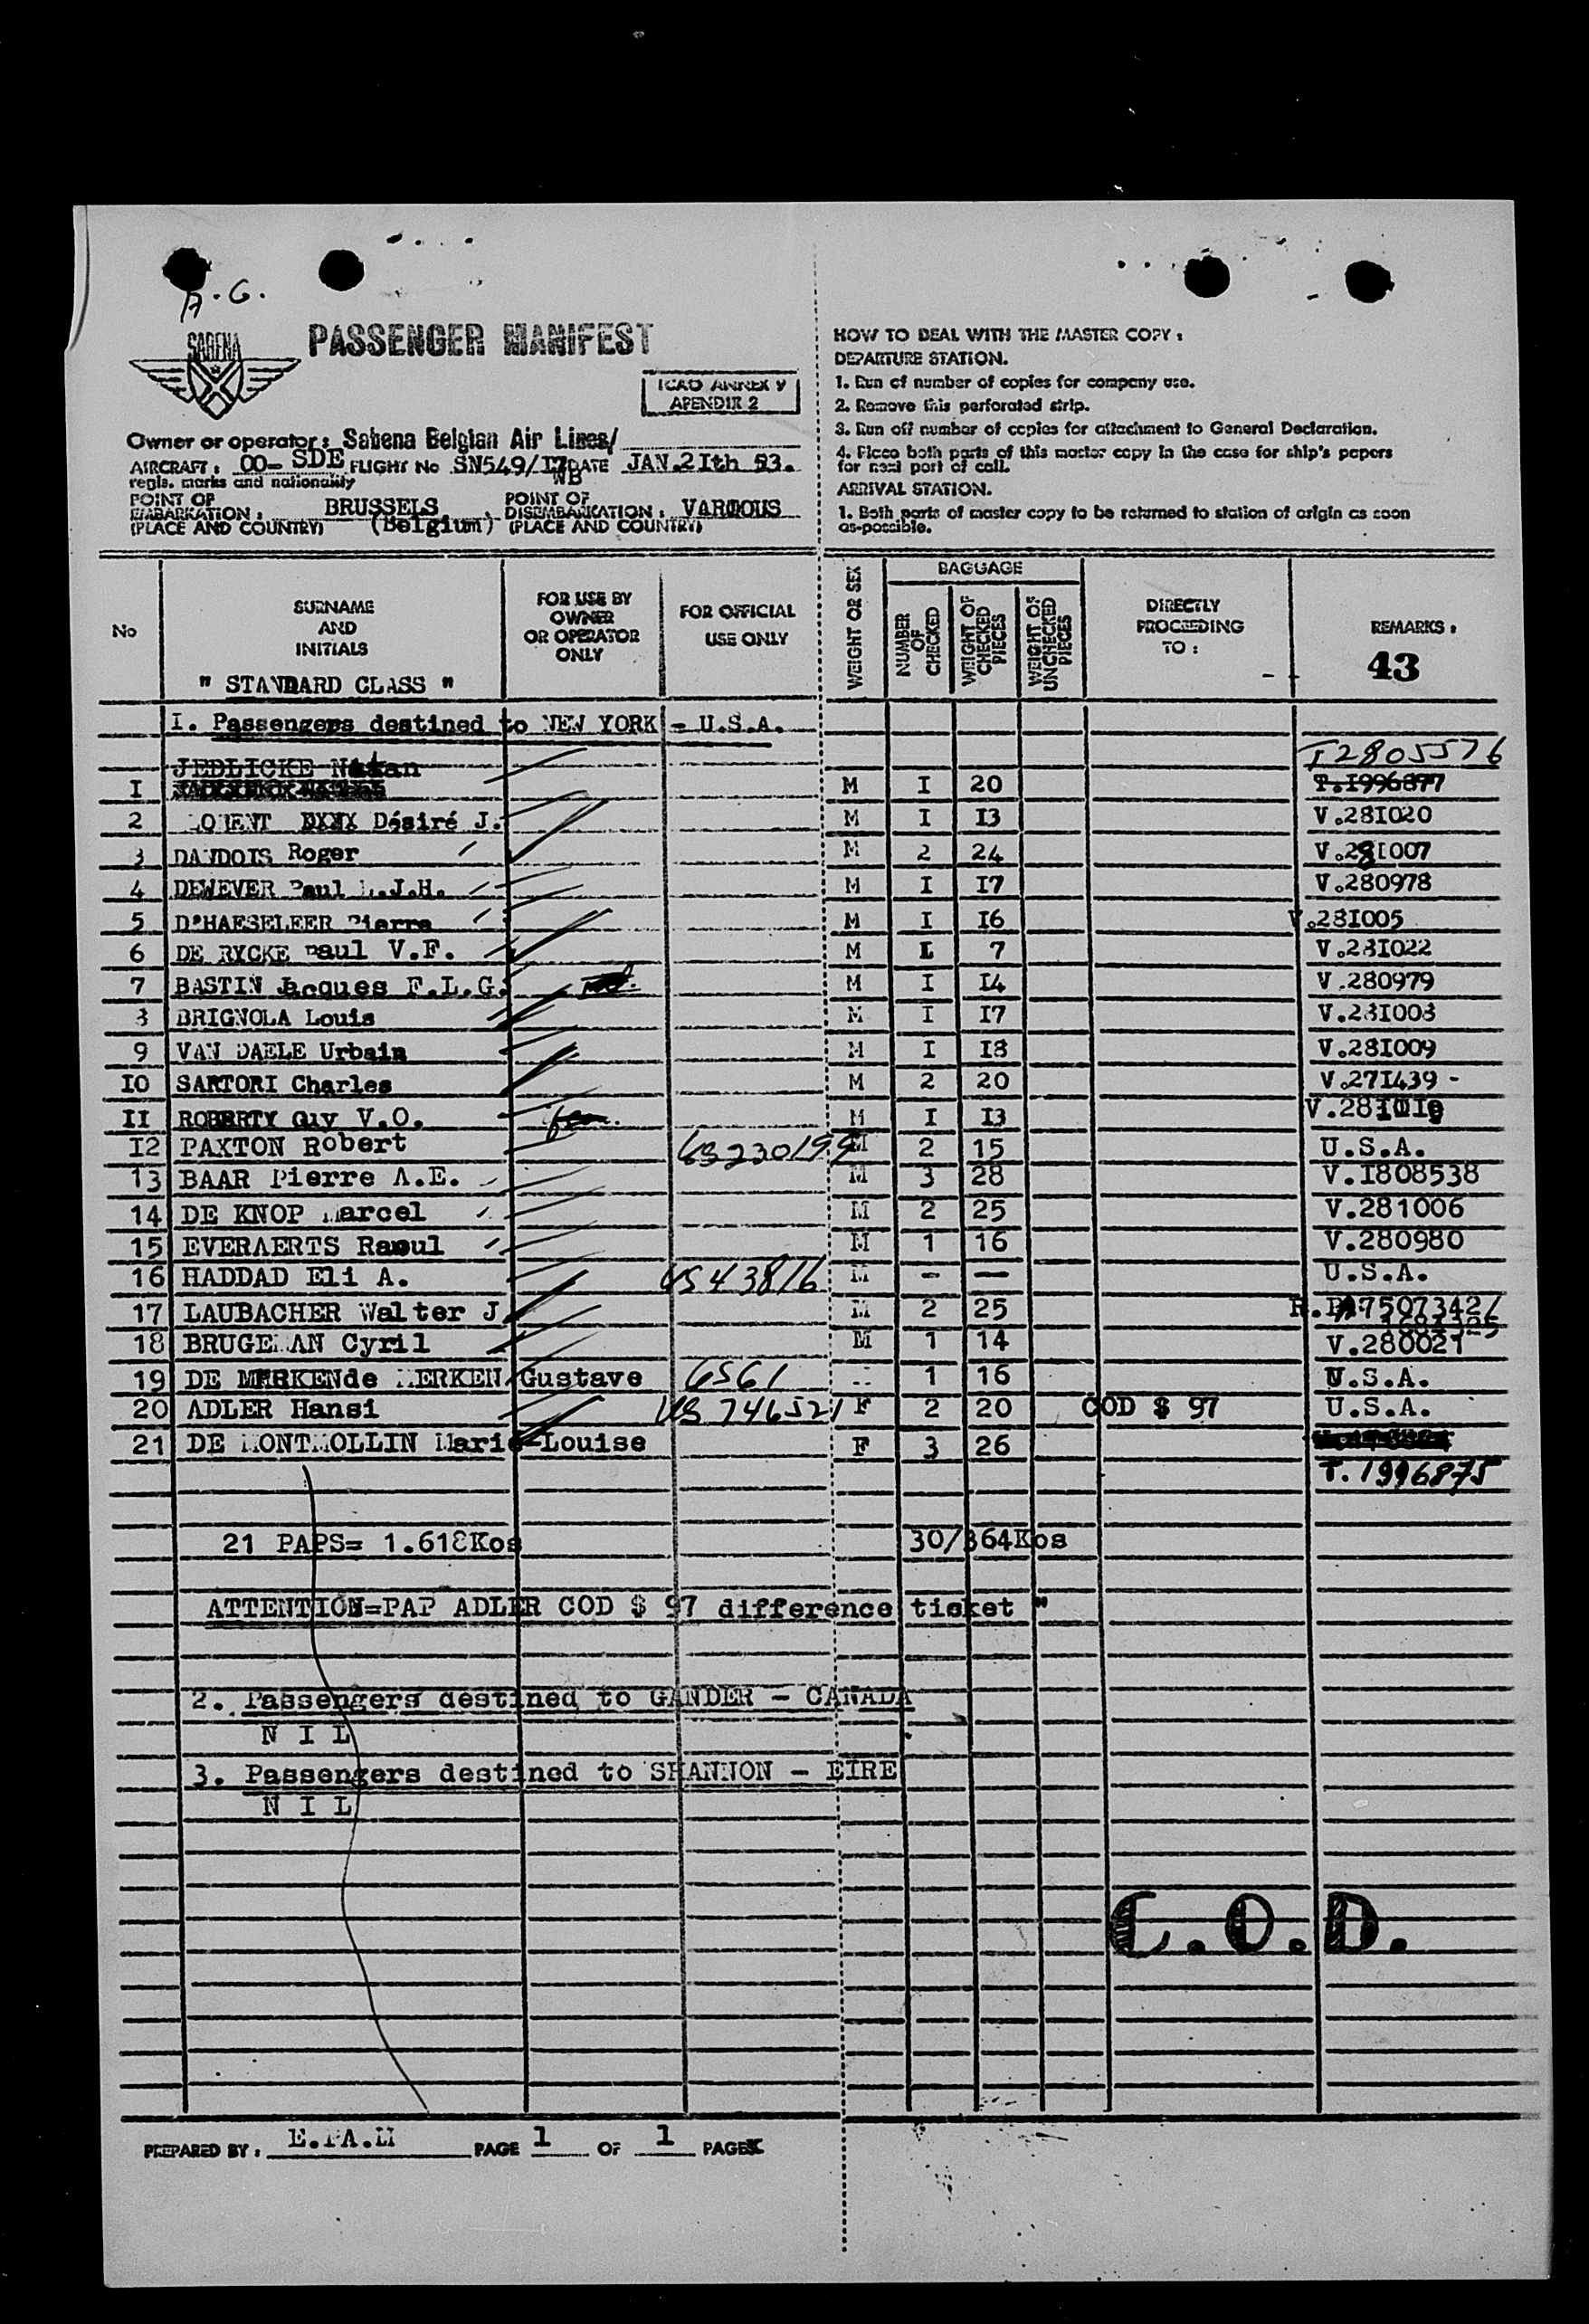 A.G.
SABENA
PASSENGER MANIFEST
ICAO ANNEX 9
APENDIX 2
Owner or operator : Sabena Belgian Air Lines/
AIRCRAFT : OO- SDE FLIGHT No SN549/I7 DATE JAN.2Ith 53.
WB
regis. marks and nationality
POINT OF EMBARKATION : BRUSSELS POINT OF DISEMBARKATION : VARIOUS
(PLACE AND COUNTRY) (Belgium) (PLACE AND COUNTRY)
HOW TO DEAL WITH THE MASTER COPY :
DEPARTURE STATION.
1. Run of number of copies for company use.
2. Remove this perforated strip.
3. Run off number of copies for attachment to General Declaration.
4. Place both parts of this master copy in the case for ship's papers
for next port of call.
ARRIVAL STATION.
1. Both parts of master copy to be returned to station of origin as soon
as-possible.
No
SURNAME
AND
INITIALS
" STANDARD CLASS "
FOR USE BY
OWNER
OR OPERATOR
ONLY
FOR OFFICIAL
USE ONLY
WEIGHT OR SEX
BAGGAGE
NUMBER OF CHECKED
WEIGHT OF CHECKED PIECES
WEIGHT OF UNCHECKED PIECES
DIRECTLY
PROCEEDING
TO :
REMARKS :
43
I. Passengers destined to NEW YORK - U.S.A.
JEDLICKE Natan T2805576
I M I 20 T.I996877
2 LORENT Désiré J. M I I3 V.28I020
3 DANDOIS Roger M 2 24 V.28I007
4 DEWEVER Paul L.J.H. M I I7 V.280978
5 D'HAESELEER Pierre M I I6 V.28I005
6 DE RYCKE Paul V.F. M I 7 V.28I022
7 BASTIN Jacques F.L.G. M I I4 V.280979
8 BRIGNOLA Louis M I I7 V.28I008
9 VAN DAELE Urbain M I I8 V.28I009
IO SARTORI Charles M 2 20 V.27I439 -
II ROBERTY Guy V.O. M I I3 V.28I0I9
I2 PAXTON Robert US230199 M 2 15 U.S.A.
13 BAAR Pierre A.E. M 3 28 V.I808538
14 DE KNOP Marcel M 2 25 V.281006
15 EVERAERTS Raoul M 1 16 V.280980
16 HADDAD Eli A. US43816 M - — U.S.A.
17 LAUBACHER Walter J M 2 25
18 BRUGEMAN Cyril M 1 14 V.280021
19 DE MERKENde MERKEN Gustave 6561 1 16 U.S.A.
20 ADLER Hansi US746521 F 2 20 COD $ 97 U.S.A.
21 DE MONTMOLLIN Marie-Louise F 3 26
T.1996875
21 PAPS= 1.618Kos 30/364Kos
ATTENTION=PAP ADLER COD $ 97 difference ticket "
2. Passengers destined to GANDER - CANADA
N I L
3. Passengers destined to SHANNON - EIRE
N I L
C.O.D.
PREPARED BY : E.PA.M PAGE 1 OF 1 PAGES